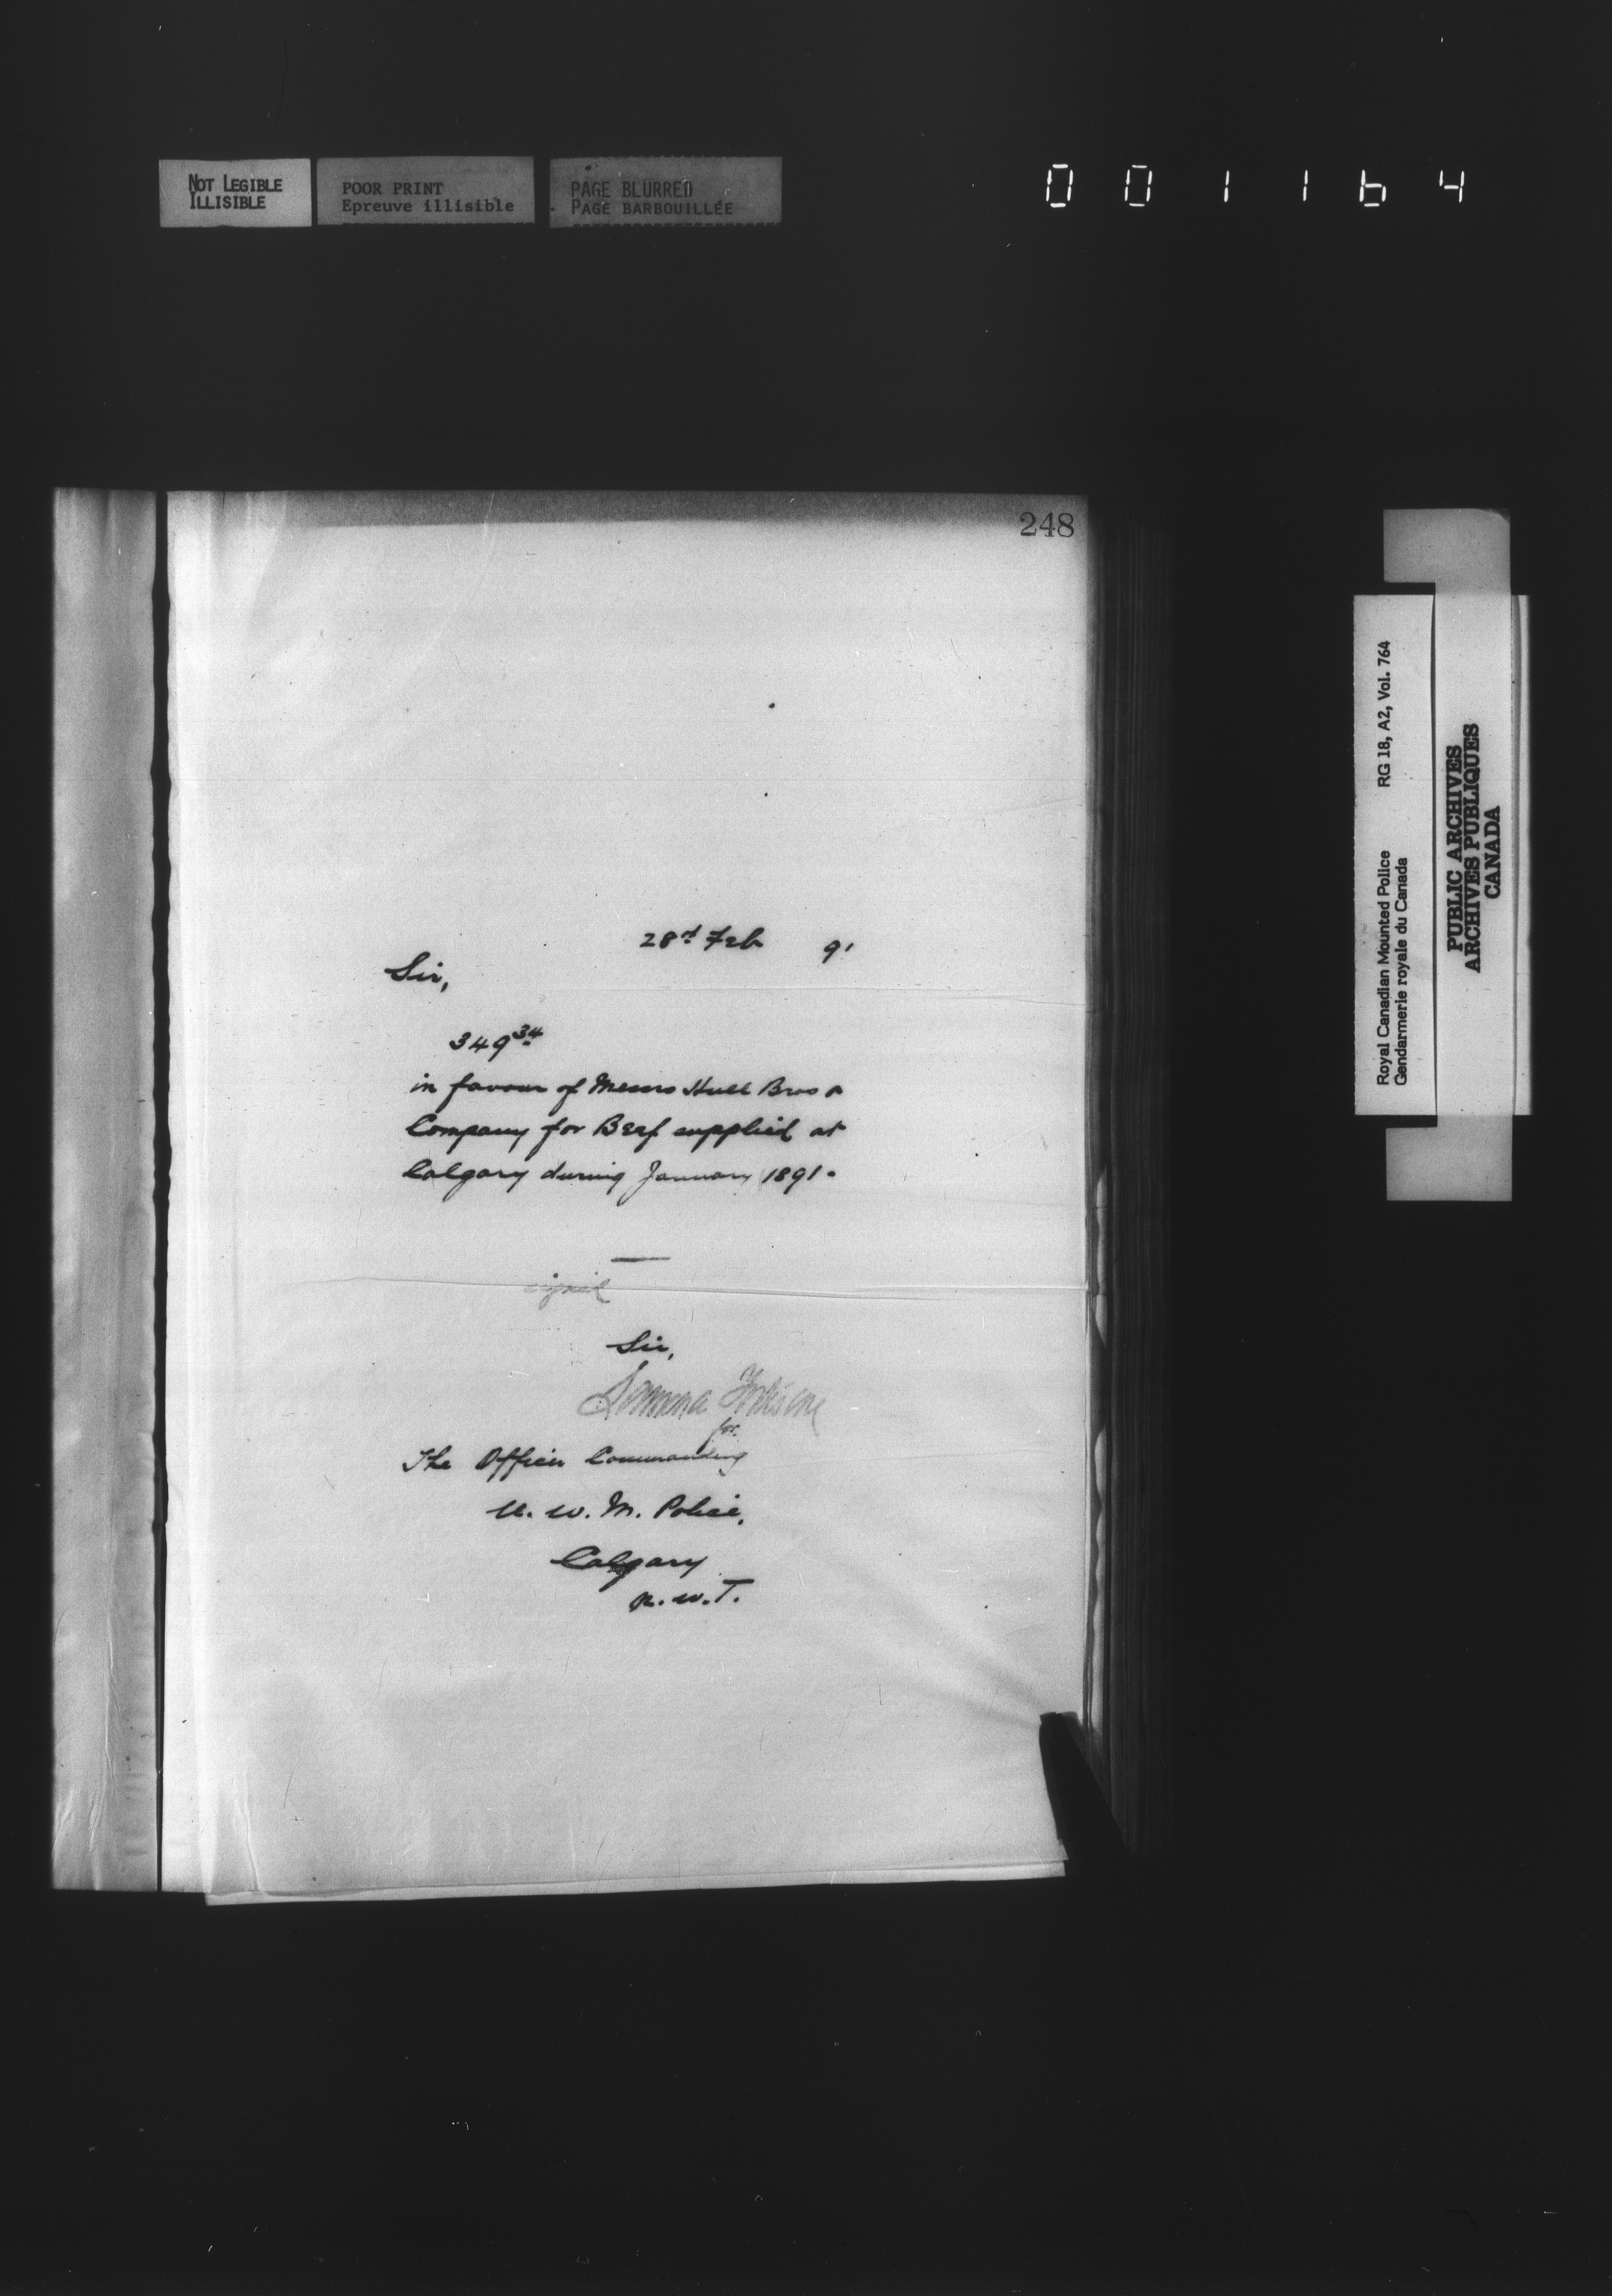 NOT LEGIBLE
ILLISIBLE
POOR PRINT
Epreuve illisible
PAGE BLURRED
PAGE BARBOUILLÉE
001164
248
28th Feb 91
Sir,
349 34
in favour of Messrs Hull Bros &
Company for Beef supplied at
Calgary during January 1891.
Sir,
for
The Officer Commanding
N. W. M. Police,
Calgary
N. W. T.
Royal Canadian Mounted Police RG 18, A2, Vol. 764
Gendarmerie royale du Canada
PUBLIC ARCHIVES
ARCHIVES PUBLIQUES
CANADA